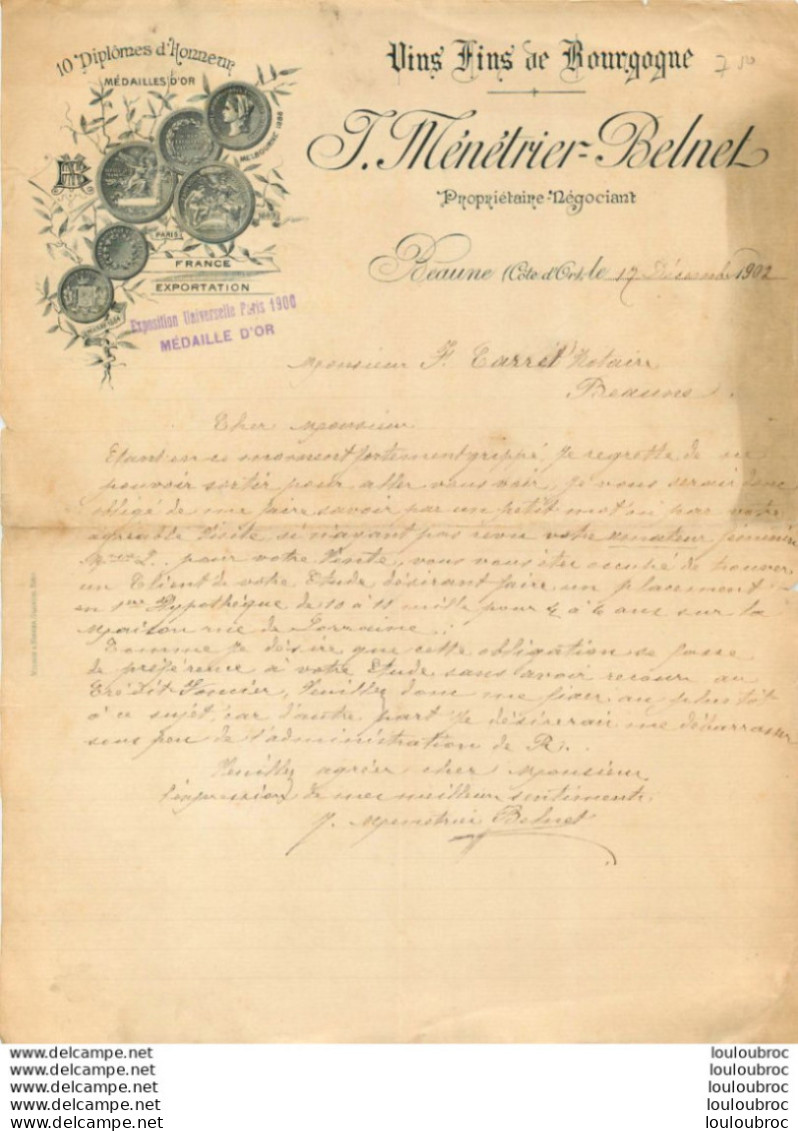 10 Diplômes d'Honneur
MÉDAILLES D'OR
MELBOURNE 1888
PARIS
FRANCE
EXPORTATION
Exposition Universelle Paris 1900
MÉDAILLE D'OR
Vins Fins de Bourgogne
J. Ménétrier-Belnet
Propriétaire-Négociant
Beaune (Côte d'Or), le 17 Décembre 1902
Monsieur F. Carrét Notaire
Beaune.
Cher Monsieur
Etant en ce moment fortement grippé, je regrette de ne
pouvoir sortir pour aller vous voir, je vous serai donc
obligé de me faire savoir par un petit mot ou par votre
agréable visite, si n'ayant pas revu votre amateur féminin
pour votre Vente, vous vous êtes occupé de trouver
un Client de votre Etude désirant faire un placement
en 1ère Hypothèque de 10 à 11 mille pour 4 à 6 ans sur la
Maison rue de Lorraine.
Comme je désire que cette obligation se fasse
de préférence à votre Etude sans avoir recours au
Crédit-Foncier, Veuillez donc me fixer au plus tôt
à ce sujet, car d'autre part je désirerai me débarrasser
sous peu de l'administration de R..
Veuillez agréer cher Monsieur
l'expression de mes meilleurs sentiments.
J. Menetrier Belnet
www.delcampe.net louloubroc
www.delcampe.net louloubroc
www.delcampe.net louloubroc
www.delcampe.net louloubroc
www.delcampe.net louloubroc